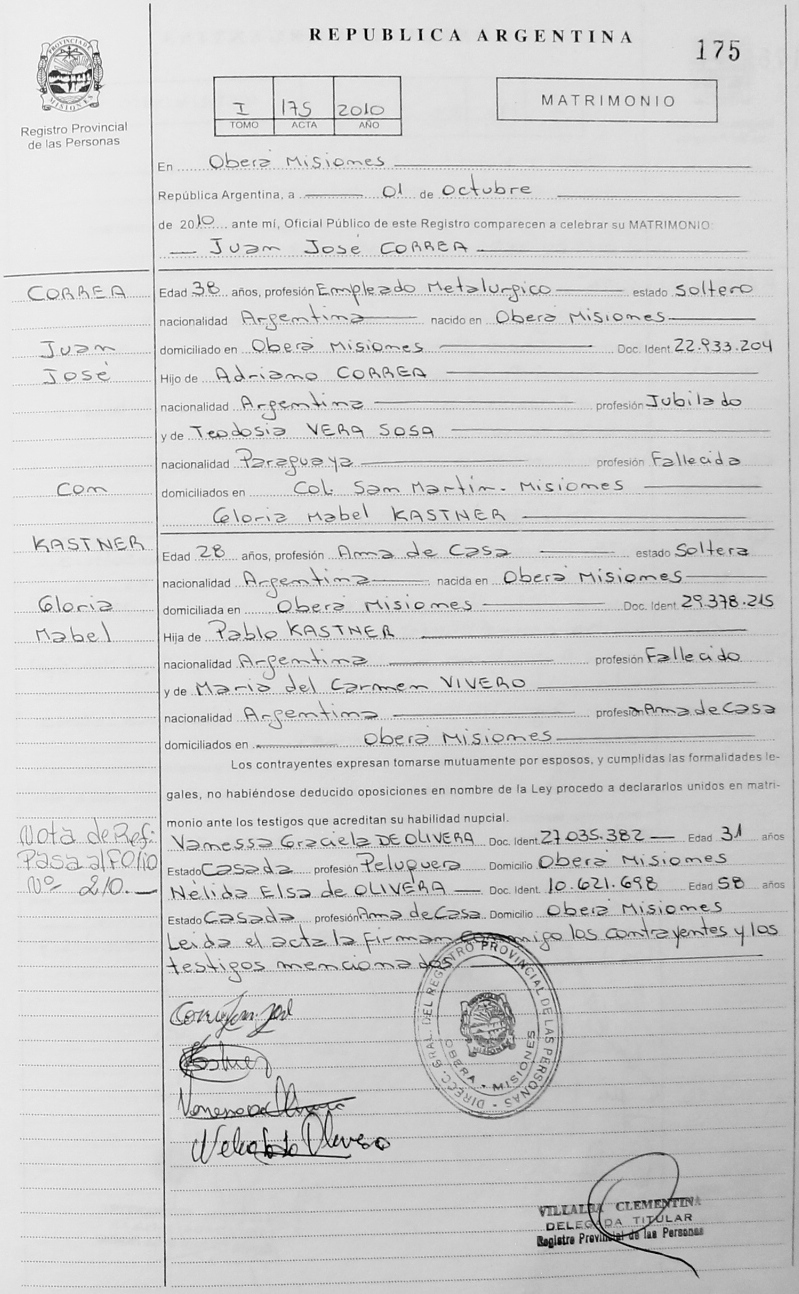 REPUBLICA ARGENTINA
175
PROVINCIA DE MISIONES
Registro Provincial
de las Personas
I 175 2010
TOMO ACTA AÑO
MATRIMONIO
En Oberá Misiones
República Argentina, a 01 de Octubre
de 2010 ante mí, Oficial Público de este Registro comparecen a celebrar su MATRIMONIO:
Juan José CORREA
CORREA
Edad 38 años, profesión Empleado Metalurgico estado Soltero
nacionalidad Argentina nacido en Oberá Misiones
Juan
domiciliado en Oberá Misiones Doc. Ident. 22.933.204
José
Hijo de Adriano CORREA
nacionalidad Argentina profesión Jubilado
y de Teodosia VERA SOSA
nacionalidad Paraguaya profesión Fallecida
Con
domiciliados en Col. San Martin. Misiones
Gloria Mabel KASTNER
KASTNER
Edad 28 años, profesión Ama de Casa estado Soltera
nacionalidad Argentina nacida en Oberá Misiones
Gloria
domiciliada en Oberá Misiones Doc. Ident. 29.378.215
Mabel
Hija de Pablo KASTNER
nacionalidad Argentina profesión Fallecido
y de Maria del Carmen VIVERO
nacionalidad Argentina profesión Ama de Casa
domiciliados en Oberá Misiones
Los contrayentes expresan tomarse mutuamente por esposos, y cumplidas las formalidades le-
gales, no habiéndose deducido oposiciones en nombre de la Ley procedo a declararlos unidos en matri-
monio ante los testigos que acreditan su habilidad nupcial.
Nota de Ref:
Pasa al Folio
Nº 210.
Vanessa Graciela DE OLIVERA Doc. Ident. 27.035.382 Edad 31 años
Estado Casada profesión Peluquera Domicilio Oberá Misiones
Nélida Elsa de OLIVERA Doc. Ident. 10.621.698 Edad 58 años
Estado Casada profesión Ama de Casa Domicilio Oberá Misiones
Leida el acta la firman conmigo los contrayentes y los
testigos mencionados
DIRECC. GRAL. DEL REGISTRO PROVINCIAL DE LAS PERSONAS
OBERA - MISIONES
VILLALBA CLEMENTINA
DELEGADA TITULAR
Registro Provincial de las Personas